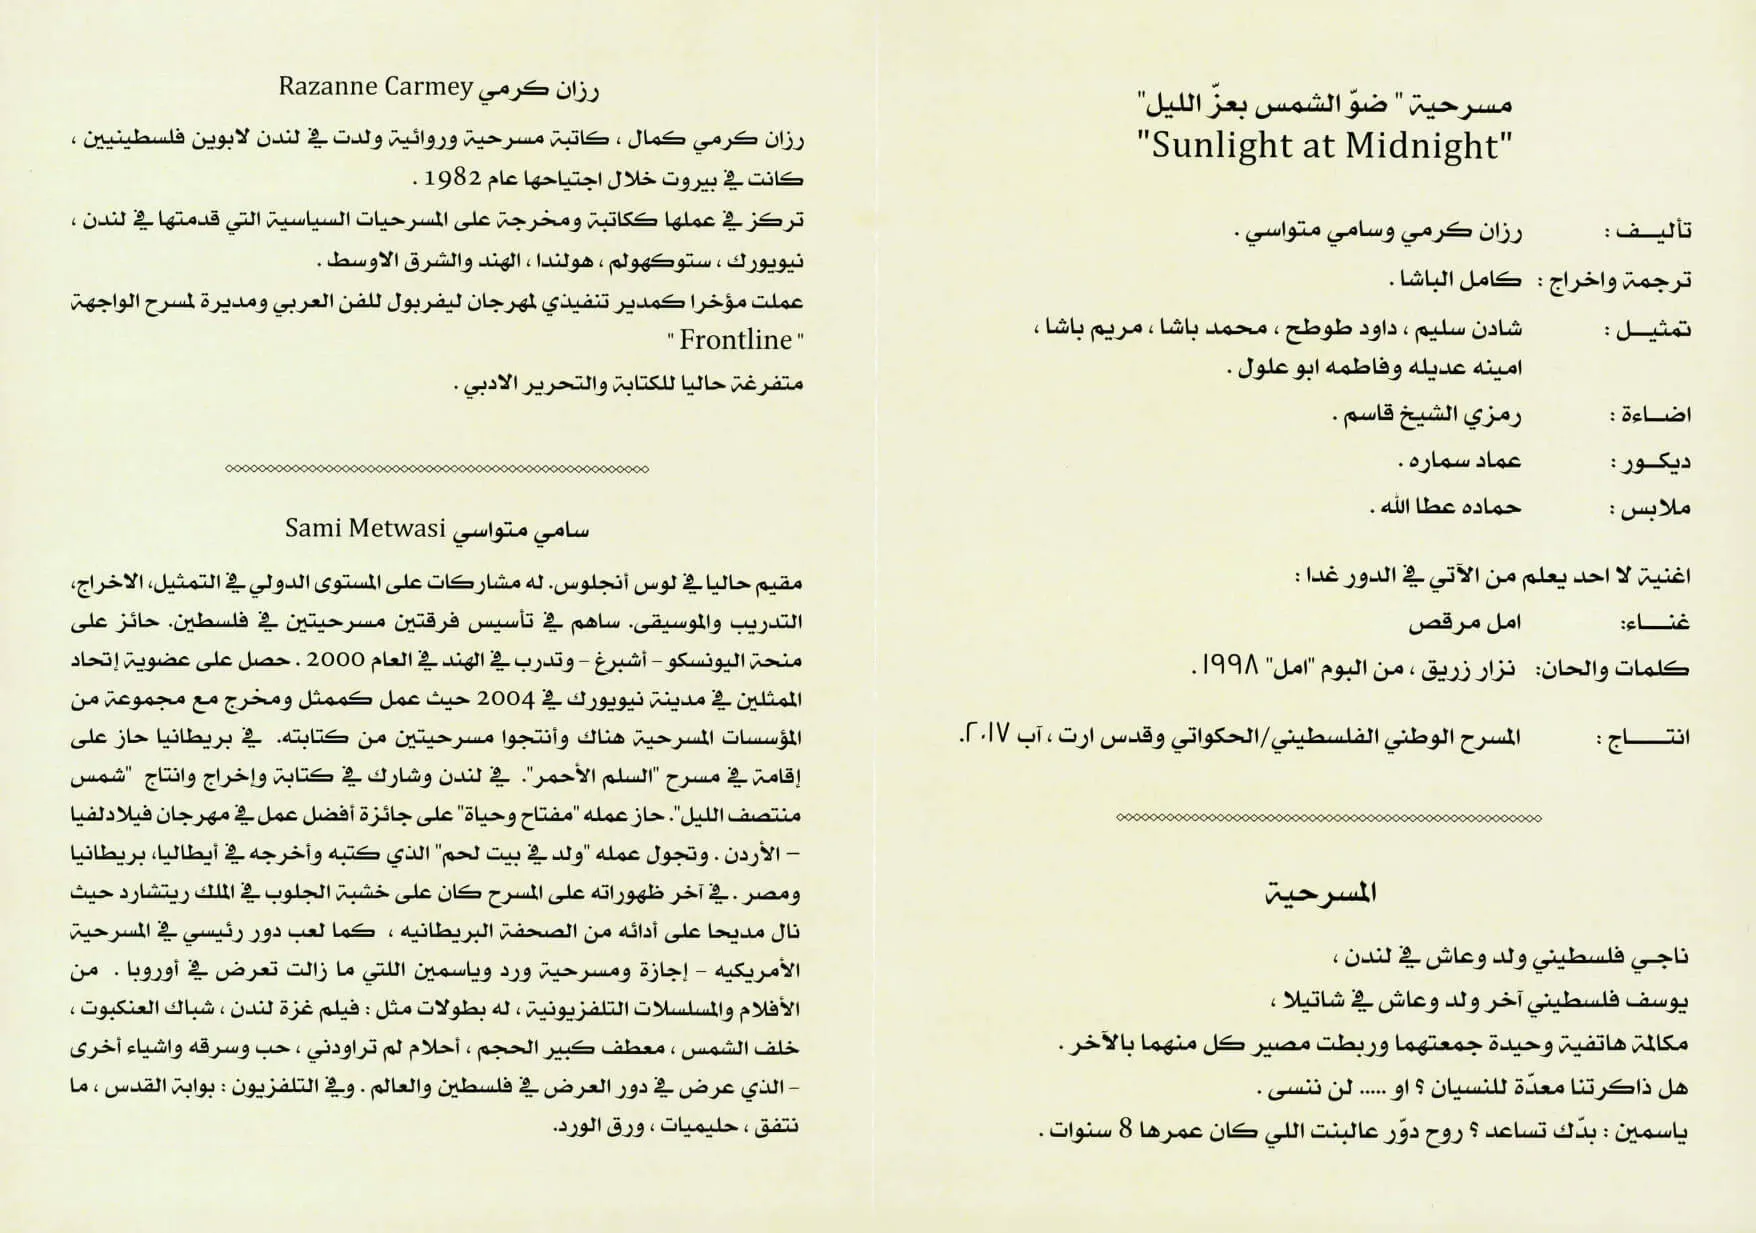 مسرحية " ضوّ الشمس بعزّ الليل"
"Sunlight at Midnight"
تأليــف : رزان كرمي وسامي متواسي .
ترجمة واخراج : كامل الباشا .
تمثيــل : شادن سليم ، داود طوطح ، محمد باشا ، مريم باشا ،
امينه عديله وفاطمه ابو علول .
اضــاءة : رمزي الشيخ قاسم .
ديكــور : عماد سماره .
ملابس : حماده عطا الله .
اغنية لا احد يعلم من الآتي في الدور غدا :
غنــــاء: امل مرقص
كلمات والحان: نزار زريق ، من البوم "امل" ١٩٩٨ .
انتــــــاج : المسرح الوطني الفلسطيني/الحكواتي وقدس ارت ، آب ٢٠١٧.
المسرحية
ناجي فلسطيني ولد وعاش في لندن ،
يوسف فلسطيني آخر ولد وعاش في شاتيلا ،
مكالمة هاتفية وحيدة جمعتهما وربطت مصير كل منهما بالآخر .
هل ذاكرتنا معدّة للنسيان ؟ او ..... لن ننسى .
ياسمين : بدّك تساعد ؟ روح دوّر عالبنت اللي كان عمرها 8 سنوات .
رزان كرمي Razanne Carmey
رزان كرمي كمال ، كاتبة مسرحية وروائية ولدت في لندن لابوين فلسطينيين ،
كانت في بيروت خلال اجتياحها عام 1982 .
تركز في عملها ككاتبة ومخرجة على المسرحيات السياسية التي قدمتها في لندن ،
نيويورك ، ستوكهولم ، هولندا ، الهند والشرق الاوسط .
عملت مؤخرا كمدير تنفيذي لمهرجان ليفربول للفن العربي ومديرة لمسرح الواجهة
" Frontline "
متفرغة حاليا للكتابة والتحرير الادبي .
سامي متواسي Sami Metwasi
مقيم حاليا في لوس أنجلوس. له مشاركات على المستوى الدولي في التمثيل، الاخراج،
التدريب والموسيقى. ساهم في تأسيس فرقتين مسرحيتين في فلسطين. حائز على
منحة اليونسكو – أشبرغ – وتدرب في الهند في العام 2000 . حصل على عضوية إتحاد
الممثلين في مدينة نيويورك في 2004 حيث عمل كممثل ومخرج مع مجموعة من
المؤسسات المسرحية هناك وأنتجوا مسرحيتين من كتابته. في بريطانيا حاز على
إقامة في مسرح "السلم الأحمر". في لندن وشارك في كتابة وإخراج وانتاج "شمس
منتصف الليل". حاز عمله "مفتاح وحياة" على جائزة أفضل عمل في مهرجان فيلادلفيا
– الأردن . وتجول عمله "ولد في بيت لحم" الذي كتبه وأخرجه في أيطاليا، بريطانيا
ومصر . في آخر ظهوراته على المسرح كان على خشبة الجلوب في الملك ريتشارد حيث
نال مديحا على أدائه من الصحفة البريطانيه ، كما لعب دور رئيسي في المسرحية
الأمريكيه – إجازة ومسرحية ورد وياسمين اللتي ما زالت تعرض في أوروبا . من
الأفلام والمسلسلات التلفزيونية ، له بطولات مثل : فيلم غزة لندن ، شباك العنكبوت ،
خلف الشمس ، معطف كبير الحجم ، أحلام لم تراودني ، حب وسرقه واشياء أخرى
– الذي عرض في دور العرض في فلسطين والعالم . وفي التلفزيون : بوابة القدس ، ما
نتفق ، حليميات ، ورق الورد.